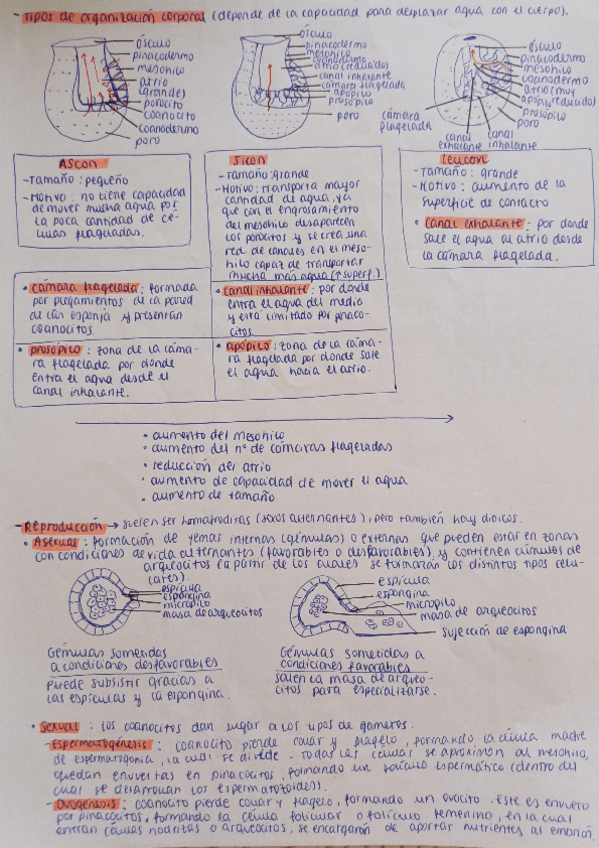 - Tipos de organización corporal (depende de la capacidad para desplazar agua con el cuerpo).
ósculo
pinacodermo
mesohilo
atrio
(grande)
porocito
coanocito
coanodermo
poro
ósculo
pinacodermo
mesohilo
coanodermo
atrio (reducido)
canal inhalante
cámara flagelada
apópilo
prosópilo
poro
ósculo
pinacodermo
mesohilo
coanodermo
atrio (muy
reducido)
apópilo
prosópilo
poro
cámara
flagelada
canal
exhalante
canal
inhalante
Ascon
- Tamaño: pequeño
- Motivo: no tiene capacidad
de mover mucha agua por
la poca cantidad de cé-
lulas flageladas.
Sicon
- Tamaño: grande
- Motivo: transporta mayor
cantidad de agua, ya
que con el engrosamiento
del mesohilo desaparecen
los porocitos y se crea una
red de canales en el meso-
hilo capaz de transportar
mucha más agua (↑superf.)
Leucon
- Tamaño: grande
- Motivo: aumento de la
superficie de contacto
• Canal exhalante - por donde
sale el agua al atrio desde
la cámara flagelada.
• Cámara flagelada: formada
por plegamientos de la pared
de las esponja y presentan
coanocitos.
• Canal inhalante: por donde
entra el agua del medio
y está limitado por pinaco-
citos.
• prosópilo: zona de la cáma-
ra flagelada por donde
entra el agua desde el
canal inhalante.
• apópilo: zona de la cáma-
ra flagelada por donde sale
el agua hacia el atrio.
• aumento del mesohilo
• aumento del nº de cámaras flageladas
• reducción del atrio
• aumento de capacidad de mover el agua
• aumento de tamaño
- Reproducción → suelen ser hermafroditas (sexos alternantes), pero también hay dioicos.
• Asexual: formación de yemas internas (gémulas) o externas que pueden estar en zonas
con condiciones de vida alternantes (favorables o desfavorables), y contienen cúmulos de
arqueocitos (a partir de los cuales se formarán los distintos tipos celu-
lares).
espícula
espongina
micropilo
masa de arqueocitos
espícula
espongina
micropilo
masa de arqueocitos
sujeción de espongina
Gémulas sometidas
a condiciones desfavorables
puede subsistir gracias a
las espículas y la espongina.
Gémulas sometidas a
condiciones favorables
salen la masa de arqueo-
citos para especializarse.
• Sexual: los coanocitos dan lugar a los tipos de gametos.
- Espermatogénesis: coanocito pierde collar y flagelo, formando la célula madre
de espermatogonia, la cual se divide. Todas las células se aproximan al mesohilo,
quedan envueltas en pinacocitos, formando un folículo espermático (dentro del
cual se desarrollan los espermatozoides).
- Ovogénesis: coanocito pierde collar y flagelo, formando un ovocito. Este es envuelto
por pinacocitos, formando la célula folicular o folículo femenino, en la cual
entran células nodritas o arqueocitos, se encargarán de aportar nutrientes al embrión.